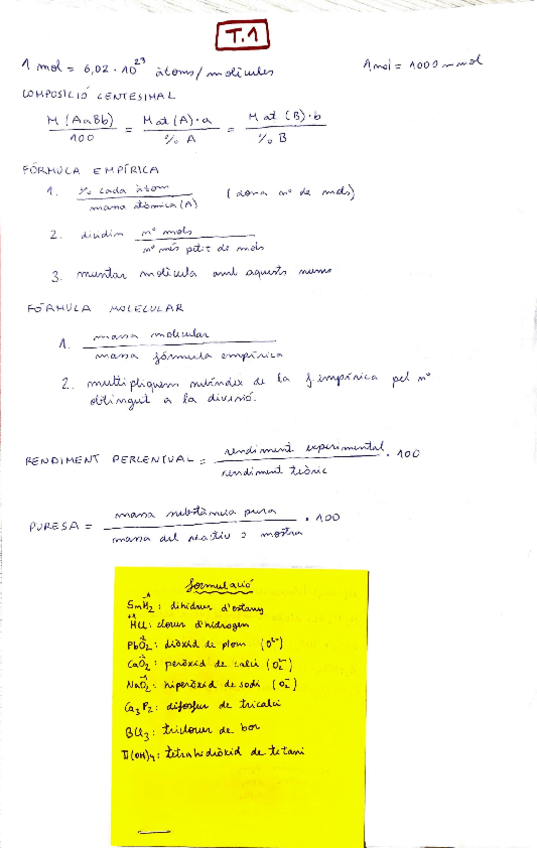 T.1
1 mol = 6,02 · 10²³ àtoms/molècules
1 mol = 1000 mmol
COMPOSICIÓ CENTESIMAL
M(AaBb)/100 = M at (A)·a/% A = M at (B)·b/% B
FÓRMULA EMPÍRICA
1. % cada àtom/massa atòmica (A) (dona nº de mols)
2. dividim nº mols/nº més petit de mols
3. muntar molècula amb aquests nums
FÓRMULA MOLECULAR
1. massa molecular/massa fórmula empírica
2. multipliquem subíndex de la f. empírica pel nº
obtingut a la divisió.
RENDIMENT PERCENTUAL = rendiment experimental/rendiment teòric · 100
PURESA = massa substància pura/massa del reactiu o mostra · 100
formulació
SnH₂: dihidrur d'estany
HCl: clorur d'hidrogen
PbO₂: diòxid de plom (O²⁻)
CaO₂: peròxid de calci (O₂²⁻)
NaO₂: hiperòxid de sodi (O₂⁻)
Ca₃P₂: difosfur de tricalci
BCl₃: triclorur de bor
Ti(OH)₄: tetrahidròxid de titani